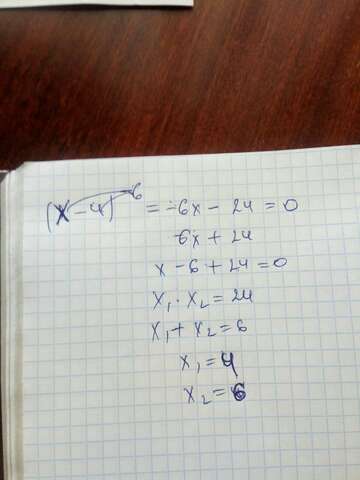 (x-4)⁻⁶ = -6x - 24 = 0
6x + 24
x - 6 + 24 = 0
x₁ · x₂ = 24
x₁ + x₂ = 6
x₁ = 4
x₂ = 6